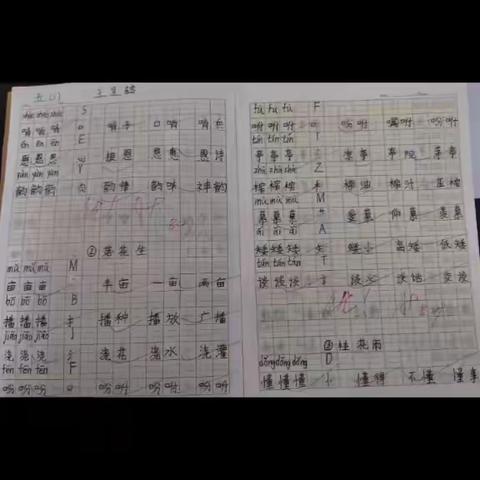 五(1)
shào shào shào S
哨 哨 哨 口 哨子 口哨 哨兵
ēn ēn ēn E
恩 恩 恩 心 恩惠
yùn yùn yùn Y
韵 韵 韵 韵律 韵味 神韵
②落花生
mǔ mǔ mǔ M
亩 亩 亩 半亩 一亩 两亩
bō bō bō B
播 播 播 扌 播种 播放 广播
jiāo jiāo jiāo J
浇 浇 浇 氵 浇花 浇水 浇灌
fēn fēn fēn F
吩 吩 吩 口 吩咐 吩咐 吩咐
fù fù fù F
咐 咐 咐 口 吩咐 嘱咐 吩咐
tíng tíng tíng
亭 亭 亭 凉亭 亭院 茅亭
zhà zhà zhà Z
榨 榨 榨 木 榨油 榨汁
mù mù mù M
慕 慕 慕 爱慕 仰慕 羡慕
ǎi ǎi ǎi A
矮 矮 矮 矢 矮小 高矮 低矮
tán tán tán T
谈 谈 谈 讠 谈心 谈话 交谈
③桂花雨
dǒng dǒng dǒng D
懂 懂 懂 忄 懂得 不懂 懂事